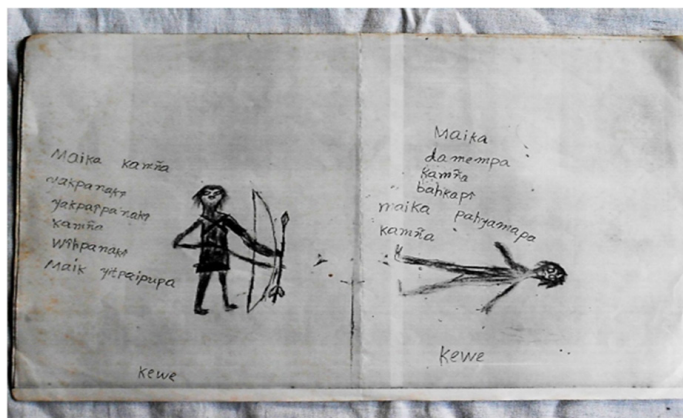 Maika kamña
yakpanakɨ
yakpaɨpanakɨ
kamña
wɨhpanakɨ
Maik yɨtpaipupa
kewe
Maika
damempa
kamña
bahkapɨ
maika pahyamapa
kamña
kewe